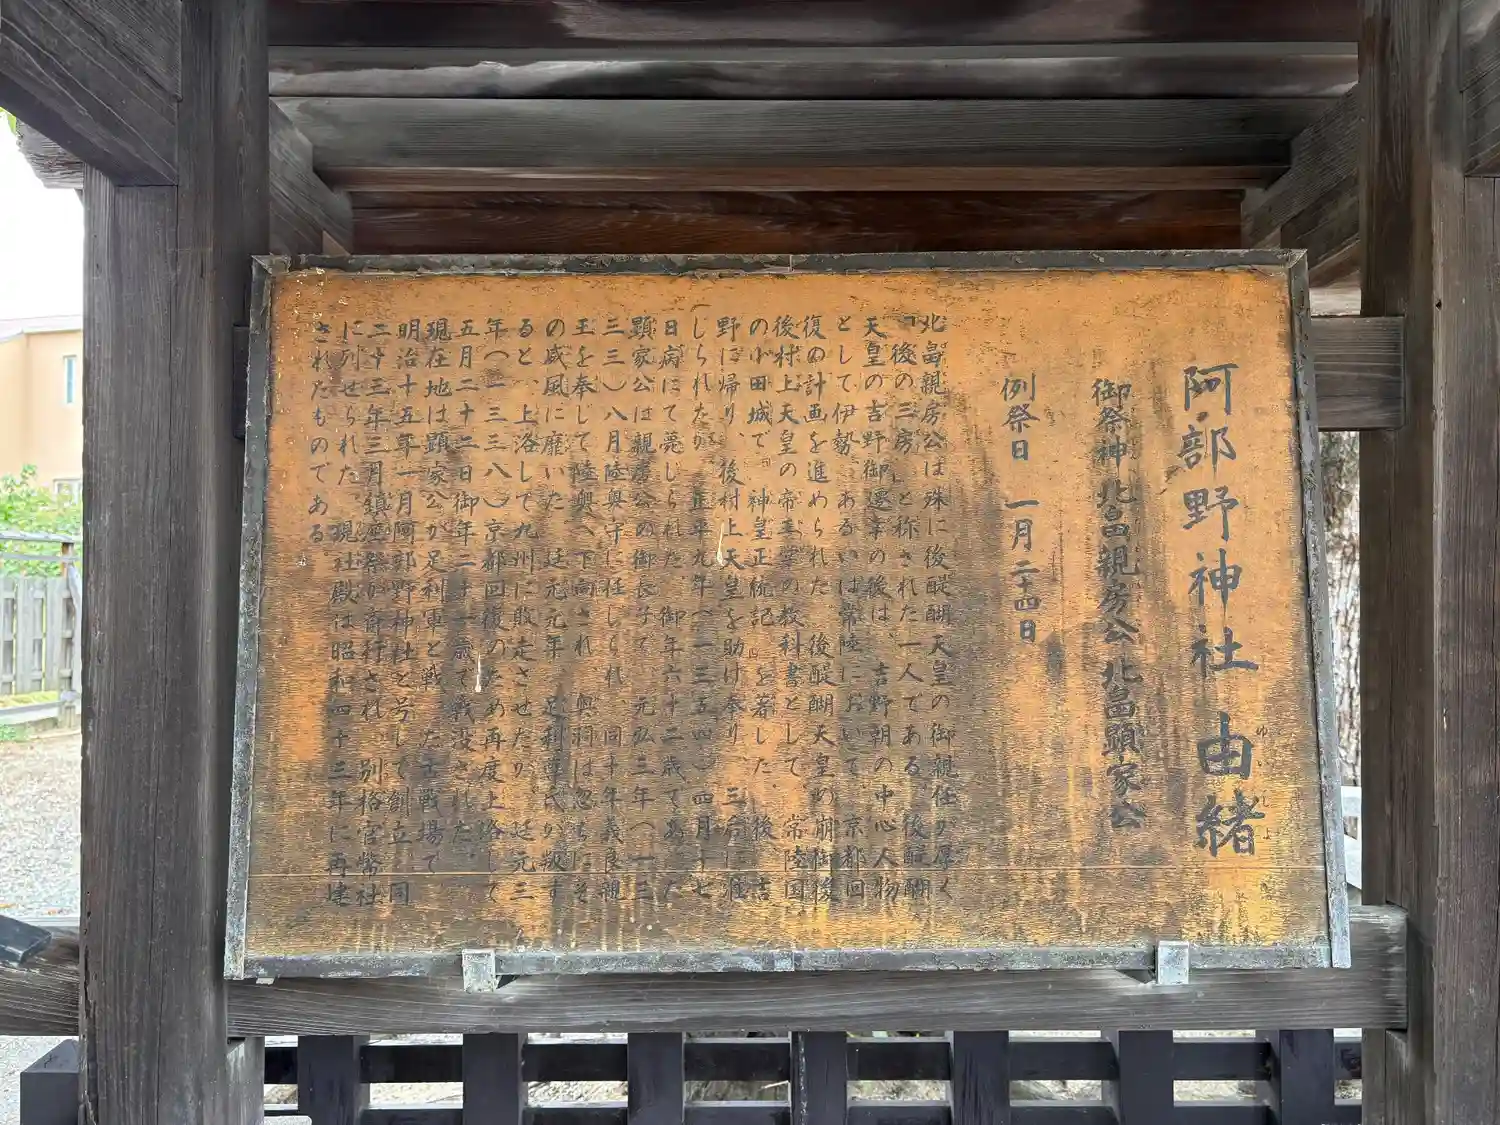 阿部野神社 由緒
ゆいしょ
御祭神 北畠親房公 北畠顕家公
例祭日 一月二十四日
北畠親房公は殊に後醍醐天皇の御親任が厚く
「後の三房」と称された一人である。後醍醐
天皇の吉野御遷幸の後は、吉野朝の中心人物
として伊勢、あるいは常陸において京都回
復の計画を進められた。後醍醐天皇の崩御後
後村上天皇の帝王学の教科書として、常陸国
の小田城で『神皇正統記』を著した。後、吉
野に帰り、後村上天皇を助け奉り、三后に准
じられたが、正平九年(一三五四)四月十七
日病にて薨じられた。御年六十二歳であった
顕家公は親房公の御長子で、元弘三年(一三
三三)八月陸奥守に任じられ、同十年義良親
王を奉じて陸奥へ下向され、奥羽は忽ちにそ
の威風に靡いた。延元元年、足利尊氏が叛す
ると、上洛して九州に敗走させたが、延元三
年(一三三八)京都回復のため再度上洛して
五月二十二日御年二十一歳で戦没された。
現在地は顕家公が足利軍と戦った古戦場で
明治十五年一月阿部野神社と号して創立、同
二十三年三月鎮座祭が斎行され、別格官幣社
に列せられた。現社殿は昭和四十三年に再建
されたものである